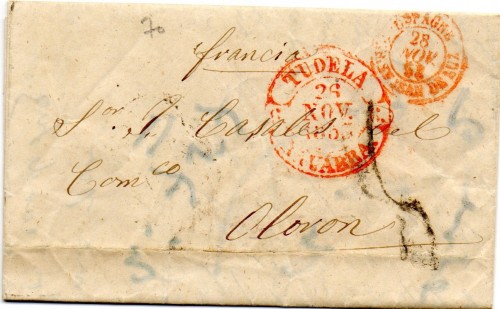 70
francia
TUDELA
26
NOV.
NAVARRA
ESPAGNE
28
NOV.
ST JEAN DE LUZ
Sor. J. Casales del
Comco
Oloron